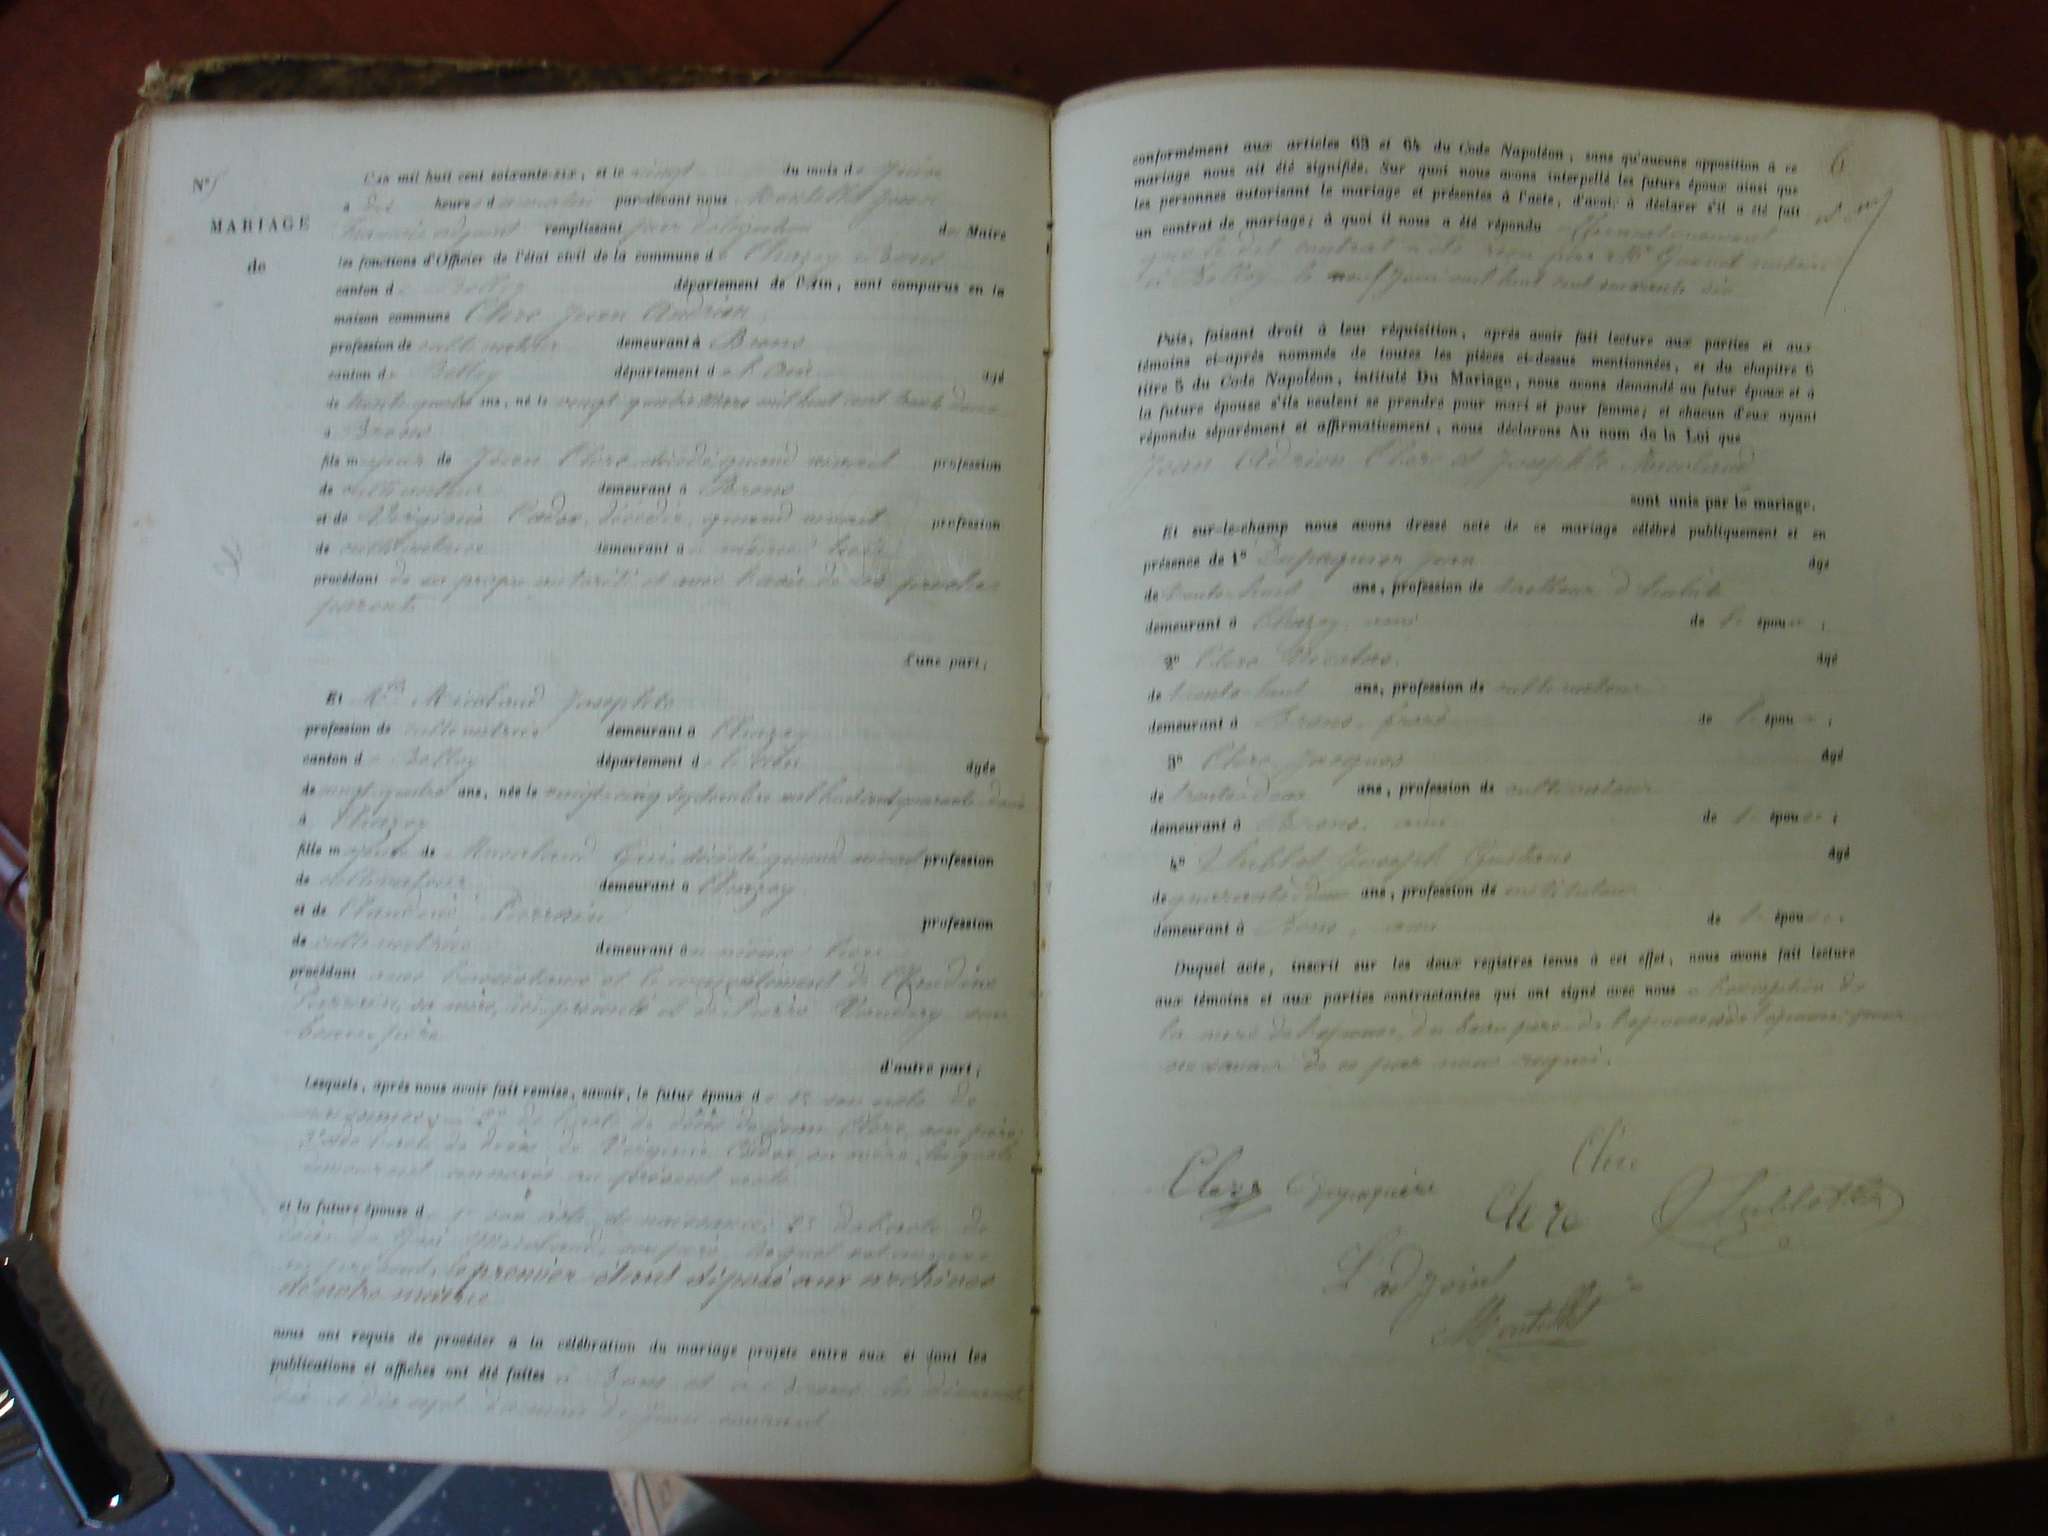 N°
MARIAGE
de
L'an mil huit cent soixante-six, et le vingt du mois de Juin
à dix heures du par-devant nous Montillet
François adjoint remplissant par délégation du Maire
les fonctions d'Officier de l'état civil de la commune de Chazey Bons
canton de Belley département de l'Ain, sont comparus en la
maison commune Clerc Jean Andrien
profession de cultivateur demeurant à Brens
canton de Belley département de l'Ain âgé
de trente quatre ans, né le vingt quatre mil huit cent trente deux
à Brens
fils majeur de Jean Clerc décédé quand vivait profession
de cultivateur demeurant à Brens
et de Virginie décédée, quand vivait profession
de cultivatrice demeurant à même lieu
procédant de sa propre autorité et avec l'avis de ses proches
parents
d'une part;
Et Mlle Micoland Josephte
profession de cultivatrice demeurant à Chazey
canton de Belley département de l'Ain âgée
de vingt quatre ans, née le vingt-cinq septembre mil huit cent quarante deux
à Chazey
fille majeure de Micoland Gui décédé quand vivait profession
de cultivateur demeurant à Chazey
et de Claudine Perrain profession
de cultivatrice demeurant à même lieu
procédant avec l'assistance et le consentement de Claudine
Perrain, sa mère, ici présente et de Pierre son
beau-père
d'autre part;
Lesquels, après nous avoir fait remise, savoir, le futur époux de 1° son acte de
naissance; 2° de l'acte de décès de Jean Clerc, son père;
3° de l'acte de décès de Virginie sa mère, lesquels
demeurent annexés au présent acte
et la future épouse de 1° son acte de naissance; 2° de l'acte de
décès de Gui Micoland, son père, lequel est annexé
au présent, le premier étant déposé aux archives
de notre mairie
nous ont requis de procéder à la célébration du mariage projeté entre eux et dont les
publications et affiches ont été faites à Bons et à Brens les dimanches
dix et dix sept du mois de Juin courant
6
conformément aux articles 63 et 64 du Code Napoléon, sans qu'aucune opposition à ce
mariage nous ait été signifiée. Sur quoi nous avons interpellé les futurs époux ainsi que
les personnes autorisant le mariage et présentes à l'acte, d'avoir à déclarer s'il a été fait
un contrat de mariage; à quoi il nous a été répondu affirmativement
que le dit contrat a été reçu par Me notaire
à Belley le neuf Juin mil huit cent soixante six
Puis, faisant droit à leur réquisition, après avoir fait lecture aux parties et aux
témoins ci-après nommés de toutes les pièces ci-dessus mentionnées, et du chapitre 6
titre 5 du Code Napoléon, intitulé Du Mariage, nous avons demandé au futur époux et à
la future épouse s'ils veulent se prendre pour mari et pour femme; et chacun d'eux ayant
répondu séparément et affirmativement, nous déclarons Au nom de la Loi que
Jean Adrien Clerc et Josephte Micoland
sont unis par le mariage.
Et sur-le-champ nous avons dressé acte de ce mariage célébré publiquement et en
présence de 1° Dupasquier Jean âgé
de trente huit ans, profession de tailleur d'habits
demeurant à Chazey, ami de l'époux;
2° Clerc âgé
de trente huit ans, profession de cultivateur
demeurant à Brens, frère de l'époux;
3° Clerc Jacques âgé
de trente deux ans, profession de cultivateur
demeurant à Brens, ami de l'époux;
4° Joseph Gustave âgé
de quarante deux ans, profession de instituteur
demeurant à Bons, ami de l'épouse.
Duquel acte, inscrit sur les deux registres tenus à cet effet, nous avons fait lecture
aux témoins et aux parties contractantes qui ont signé avec nous à l'exception de
la mère de l'épouse, du beau père de l'épouse et de l'épouse, pour
ne savoir de ce par nous requis.
Clerc
Clerc Dupasquier Clerc
L'adjoint
Montillet